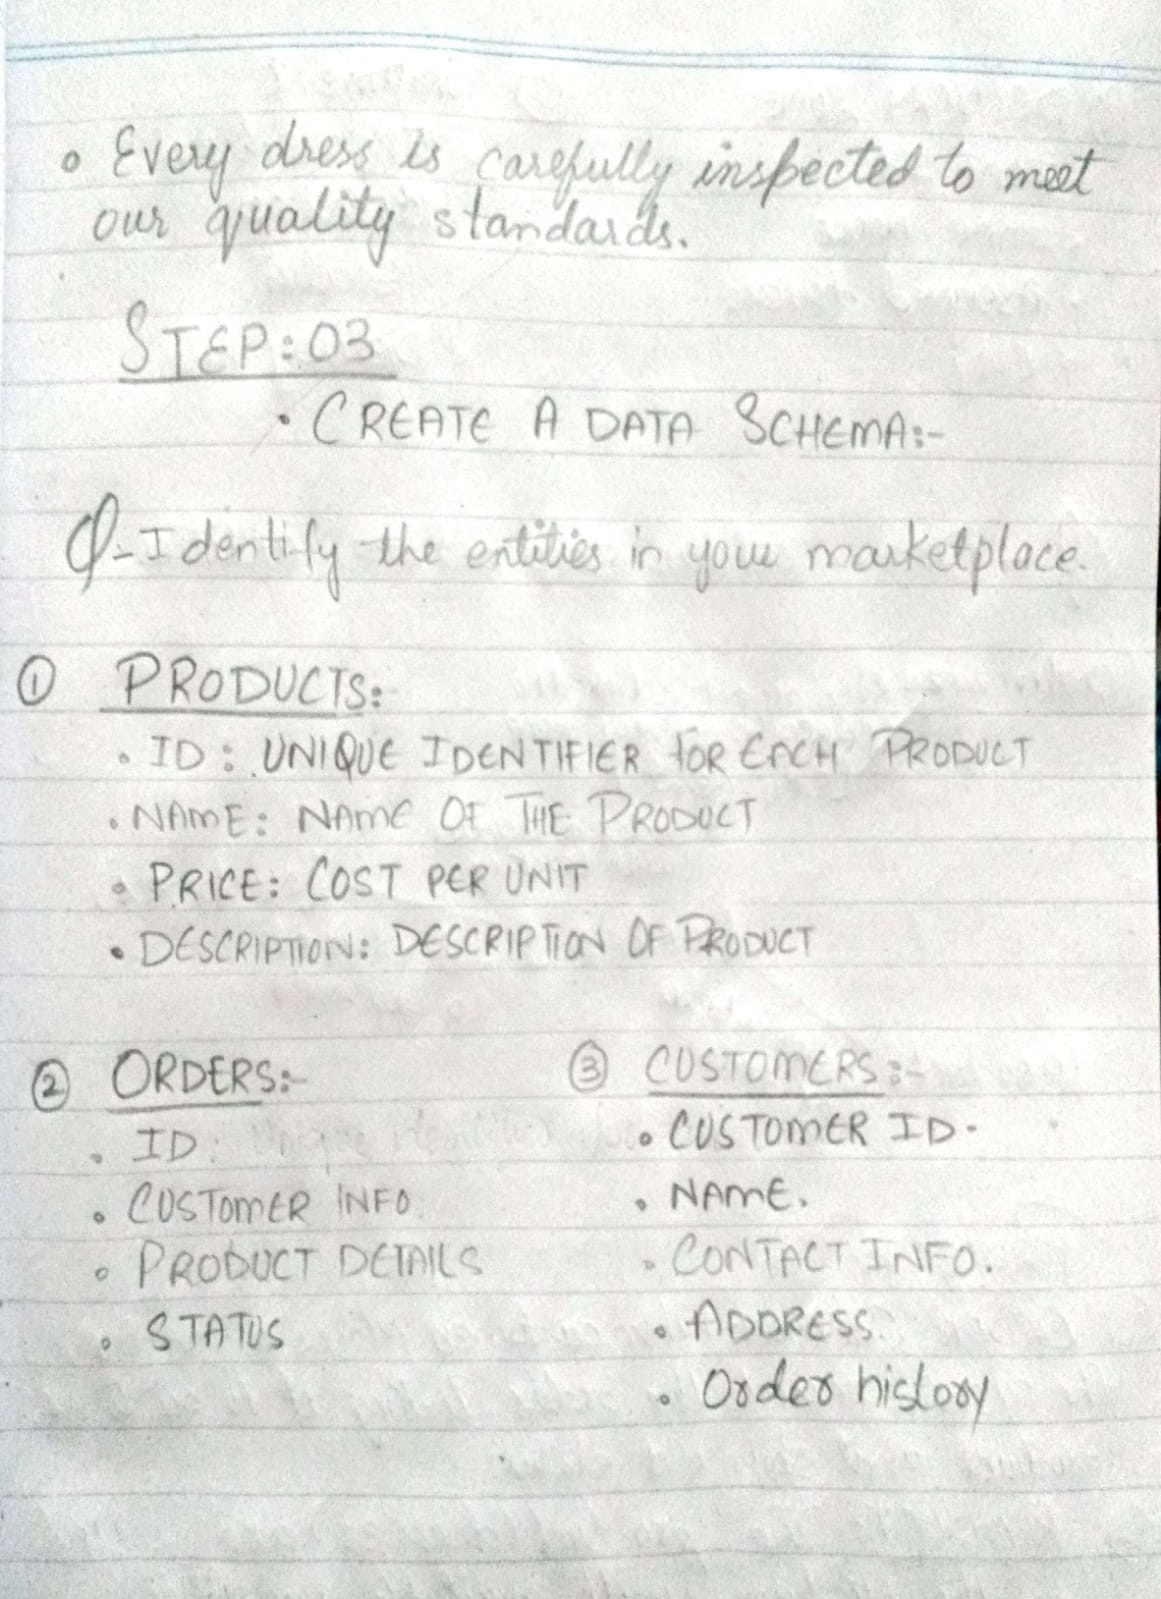 • Every dress is carefully inspected to meet
our quality standards.
STEP:03
• CREATE A DATA SCHEMA:-
Q-Identify the entities in your marketplace.
① PRODUCTS:
• ID: UNIQUE IDENTIFIER FOR EACH PRODUCT
• NAME: NAME OF THE PRODUCT
• PRICE: COST PER UNIT
• DESCRIPTION: DESCRIPTION OF PRODUCT
② ORDERS:-
• ID:
• CUSTOMER INFO.
• PRODUCT DETAILS
• STATUS
③ CUSTOMERS:-
• CUSTOMER ID.
• NAME.
• CONTACT INFO.
• ADDRESS.
• Order history